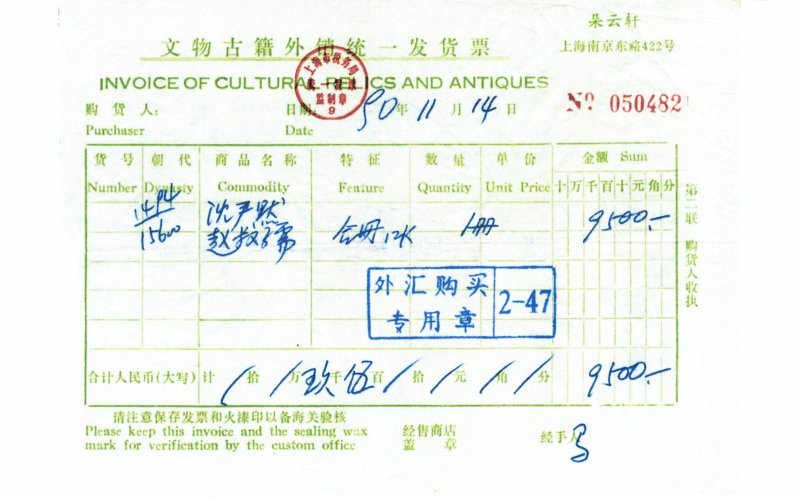 朵云轩
文物古籍外销统一发货票 上海南京东路422号
INVOICE OF CULTURAL RELICS AND ANTIQUES
上海市税务局
监制章
9
购货人: 日期: 90年 11月 14日 Nº 050482
Purchaser Date
货号 朝代 商品名称 特征 数量 单价 金额 Sum
Number Dynasty Commodity Feature Quantity Unit Price 十万千百十元角分
1494 沈尹默
15600 赵叔孺 合册12K 1册 9500.-
外汇购买 2-47
专用章
合计人民币(大写) 计 / 拾 / 万 玖 千 伍 百 / 拾 / 元 / 角 / 分 9500.-
第二联 购货人收执
请注意保存发票和火漆印以备海关验核
Please keep this invoice and the sealing wax 经售商店 经手人
mark for verification by the custom office 盖章